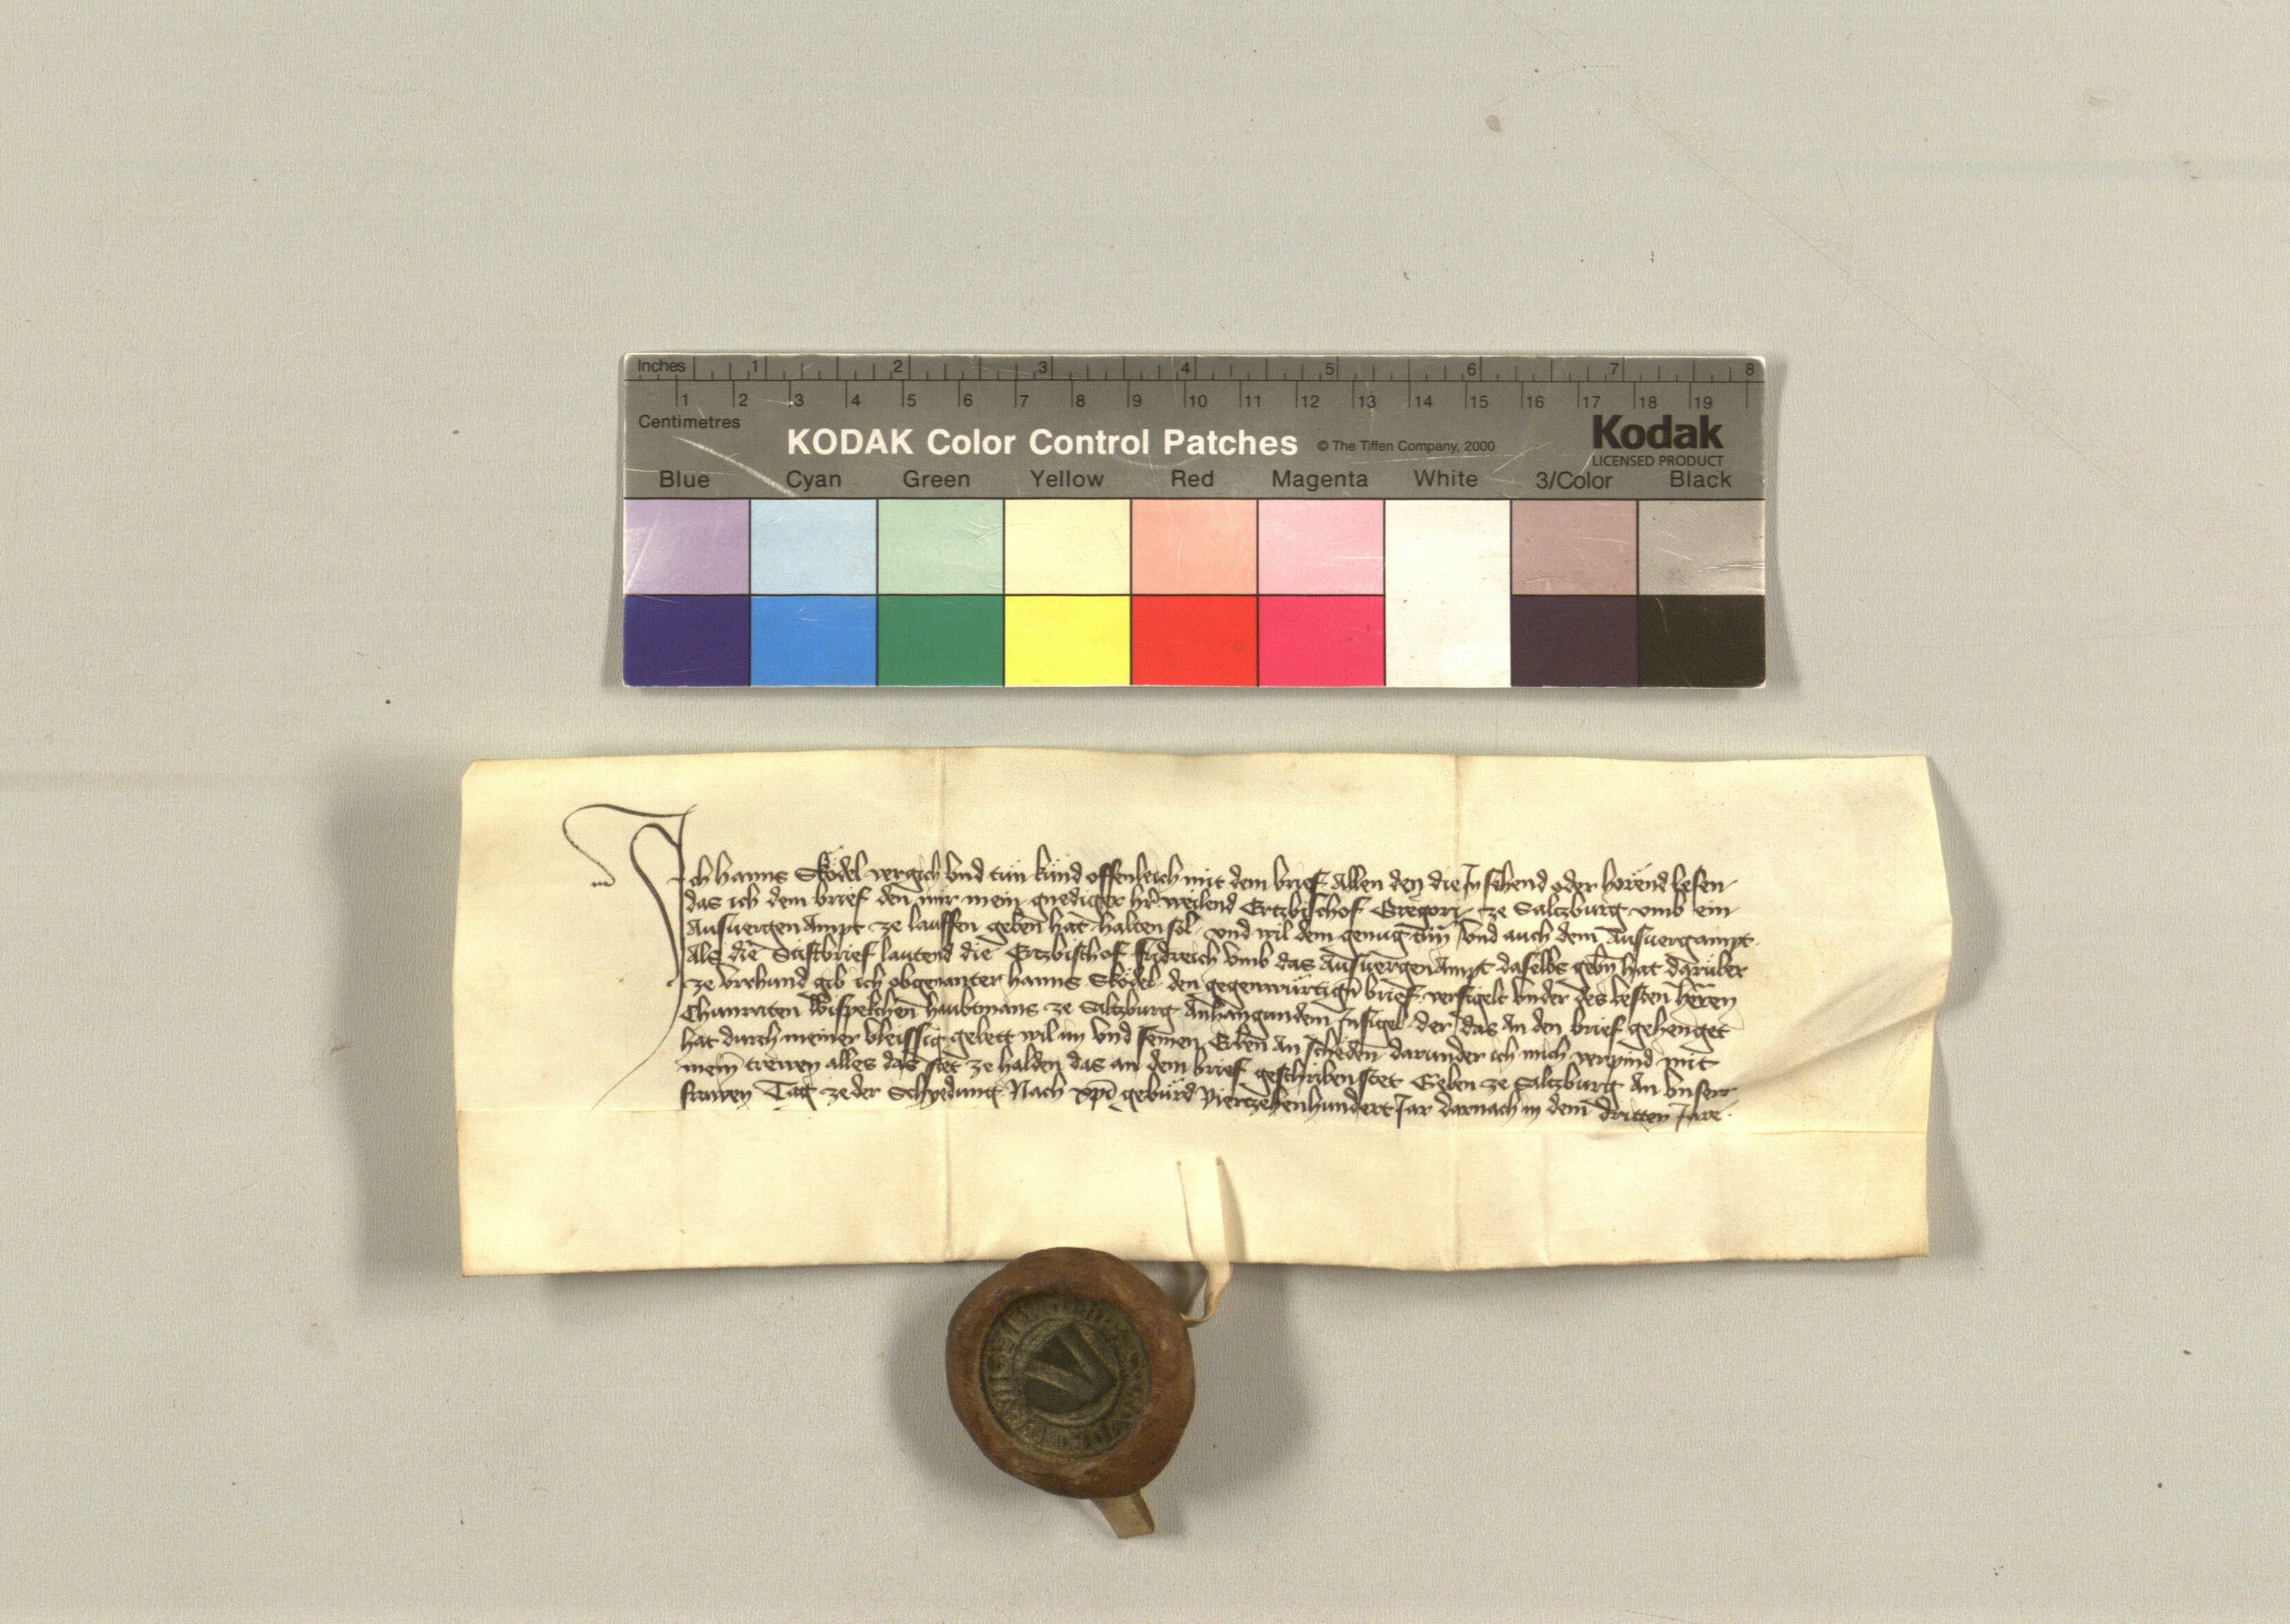 Inches 1 2 3 4 5 6 7 8
1 2 3 4 5 6 7 8 9 10 11 12 13 14 15 16 17 18 19
Centimetres
KODAK Color Control Patches © The Tiffen Company, 2000 Kodak
LICENSED PRODUCT
Blue Cyan Green Yellow Red Magenta White 3/Color Black
Ich Hanns Sködel vergich vnd tün künd offenleich mit dem brief Allen den die In sehend oder hörend lesen
das ich dem brief den mir mein gnediger hr weilend Ertzbischof Gregori ze Saltzburg vmb ein
Ausuergen Ampt ze lauffen geben hat halten sol vnd wil dem genug tün vnd auch dem Ausuergampt
Als die Stiftbrief lautend die Ertzbischof fridreich vmb das Ausuergen Ampt daselbs gebn hat darüber
ze vrchund gib ich obgenanter hanns Sködel den gegenwürtign brief versigelt vnder des vesten herren
Chunraten haubtmans ze Saltzburg Anhangundem Insigel der das An den brief gehenget
hat durch meiner vleissig gebett wil im vnd seinen Erben An scheden darunder ich mich verpind mit
mein trewen alles das stet ze halden das an dem brief geschriben stet Geben ze Saltzburg An vnser
frawen Tag ze der Schydung Nach xpi gebürd Viertzehenhundert Jar darnach in dem dritten Jare